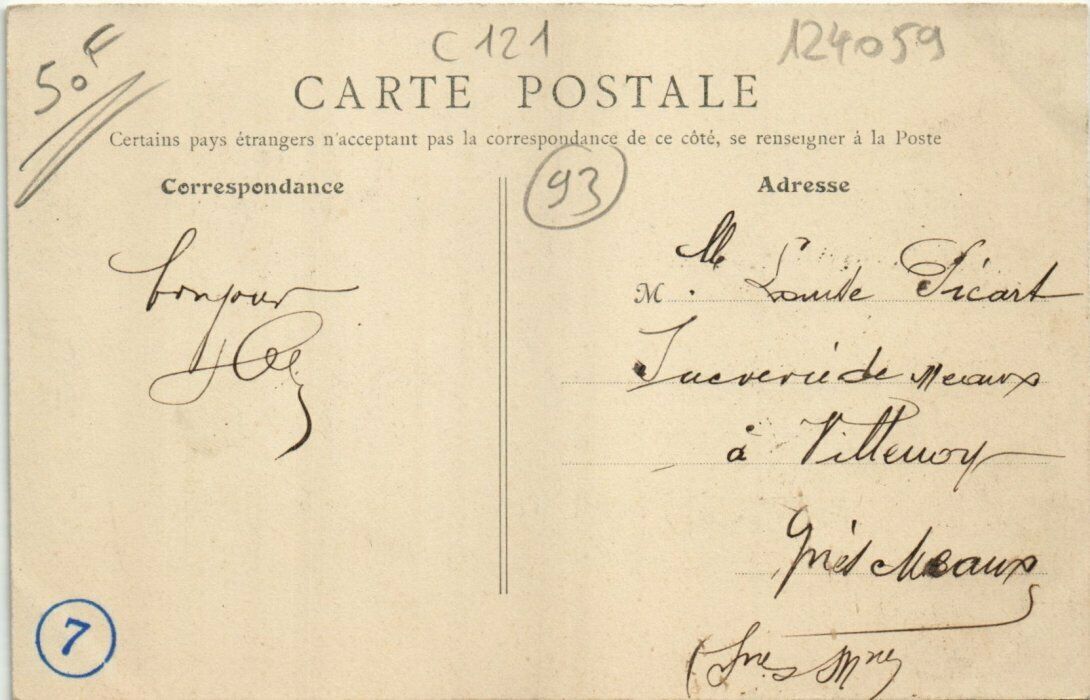 50F
C 121
124059
CARTE POSTALE
Certains pays étrangers n'acceptant pas la correspondance de ce côté, se renseigner à la Poste
Correspondance
bonjour
93
Adresse
M. Lle Louise Picart
Sucrerie de Meaux
à Villenoy
près Meaux
(Sne & Mne)
7